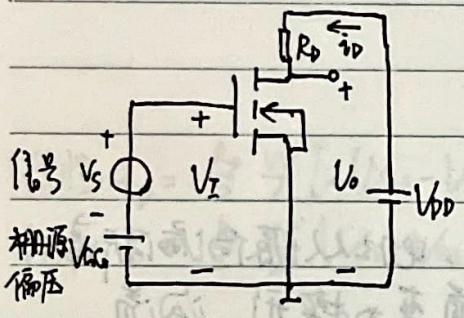 R_D
i_D
+
+
+
信号 V_S
V_I
V_o
V_DD
-
栅源 V_GG
-
-
偏压